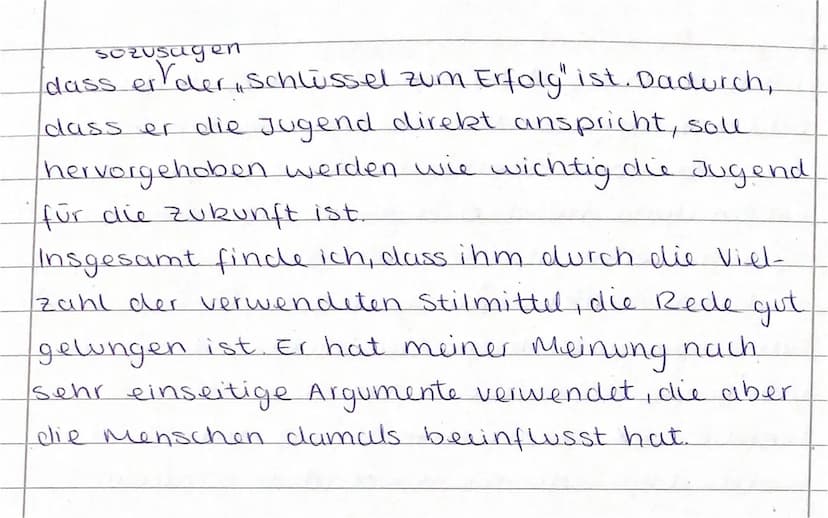 sozusagen
dass er der „Schlüssel zum Erfolg" ist. Dadurch,
dass er die Jugend direkt anspricht, soll
hervorgehoben werden wie wichtig die Jugend
für die Zukunft ist.
Insgesamt finde ich, dass ihm durch die Viel-
zahl der verwendeten Stilmittel, die Rede gut
gelungen ist. Er hat meiner Meinung nach
sehr einseitige Argumente verwendet, die aber
die Menschen damals beeinflusst hat.